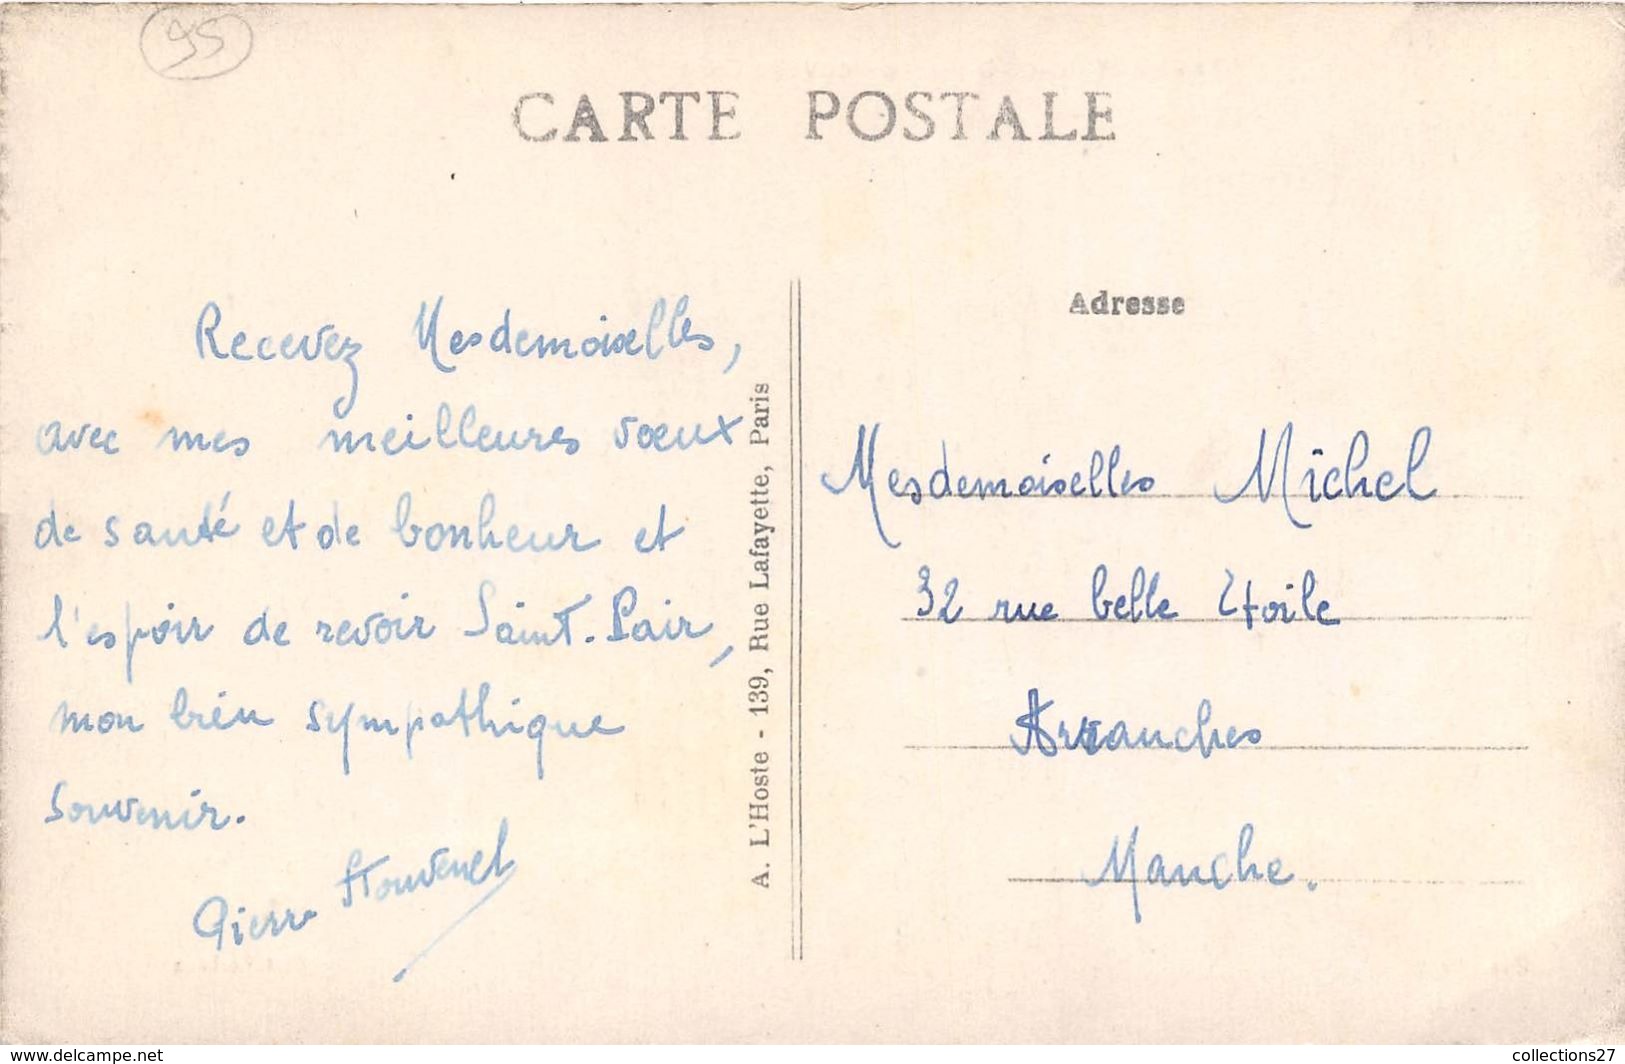 95
CARTE POSTALE
Recevez Mesdemoiselles,
avec mes meilleures voeux
de santé et de bonheur et
l'espoir de revoir Saint-Pair,
mon bien sympathique
souvenir.
Pierre
A. L'Hoste - 139, Rue Lafayette, Paris
Adresse
Mesdemoiselles Michel
32 rue belle Etoile
Avranches
Manche.
www.delcampe.net
collections27